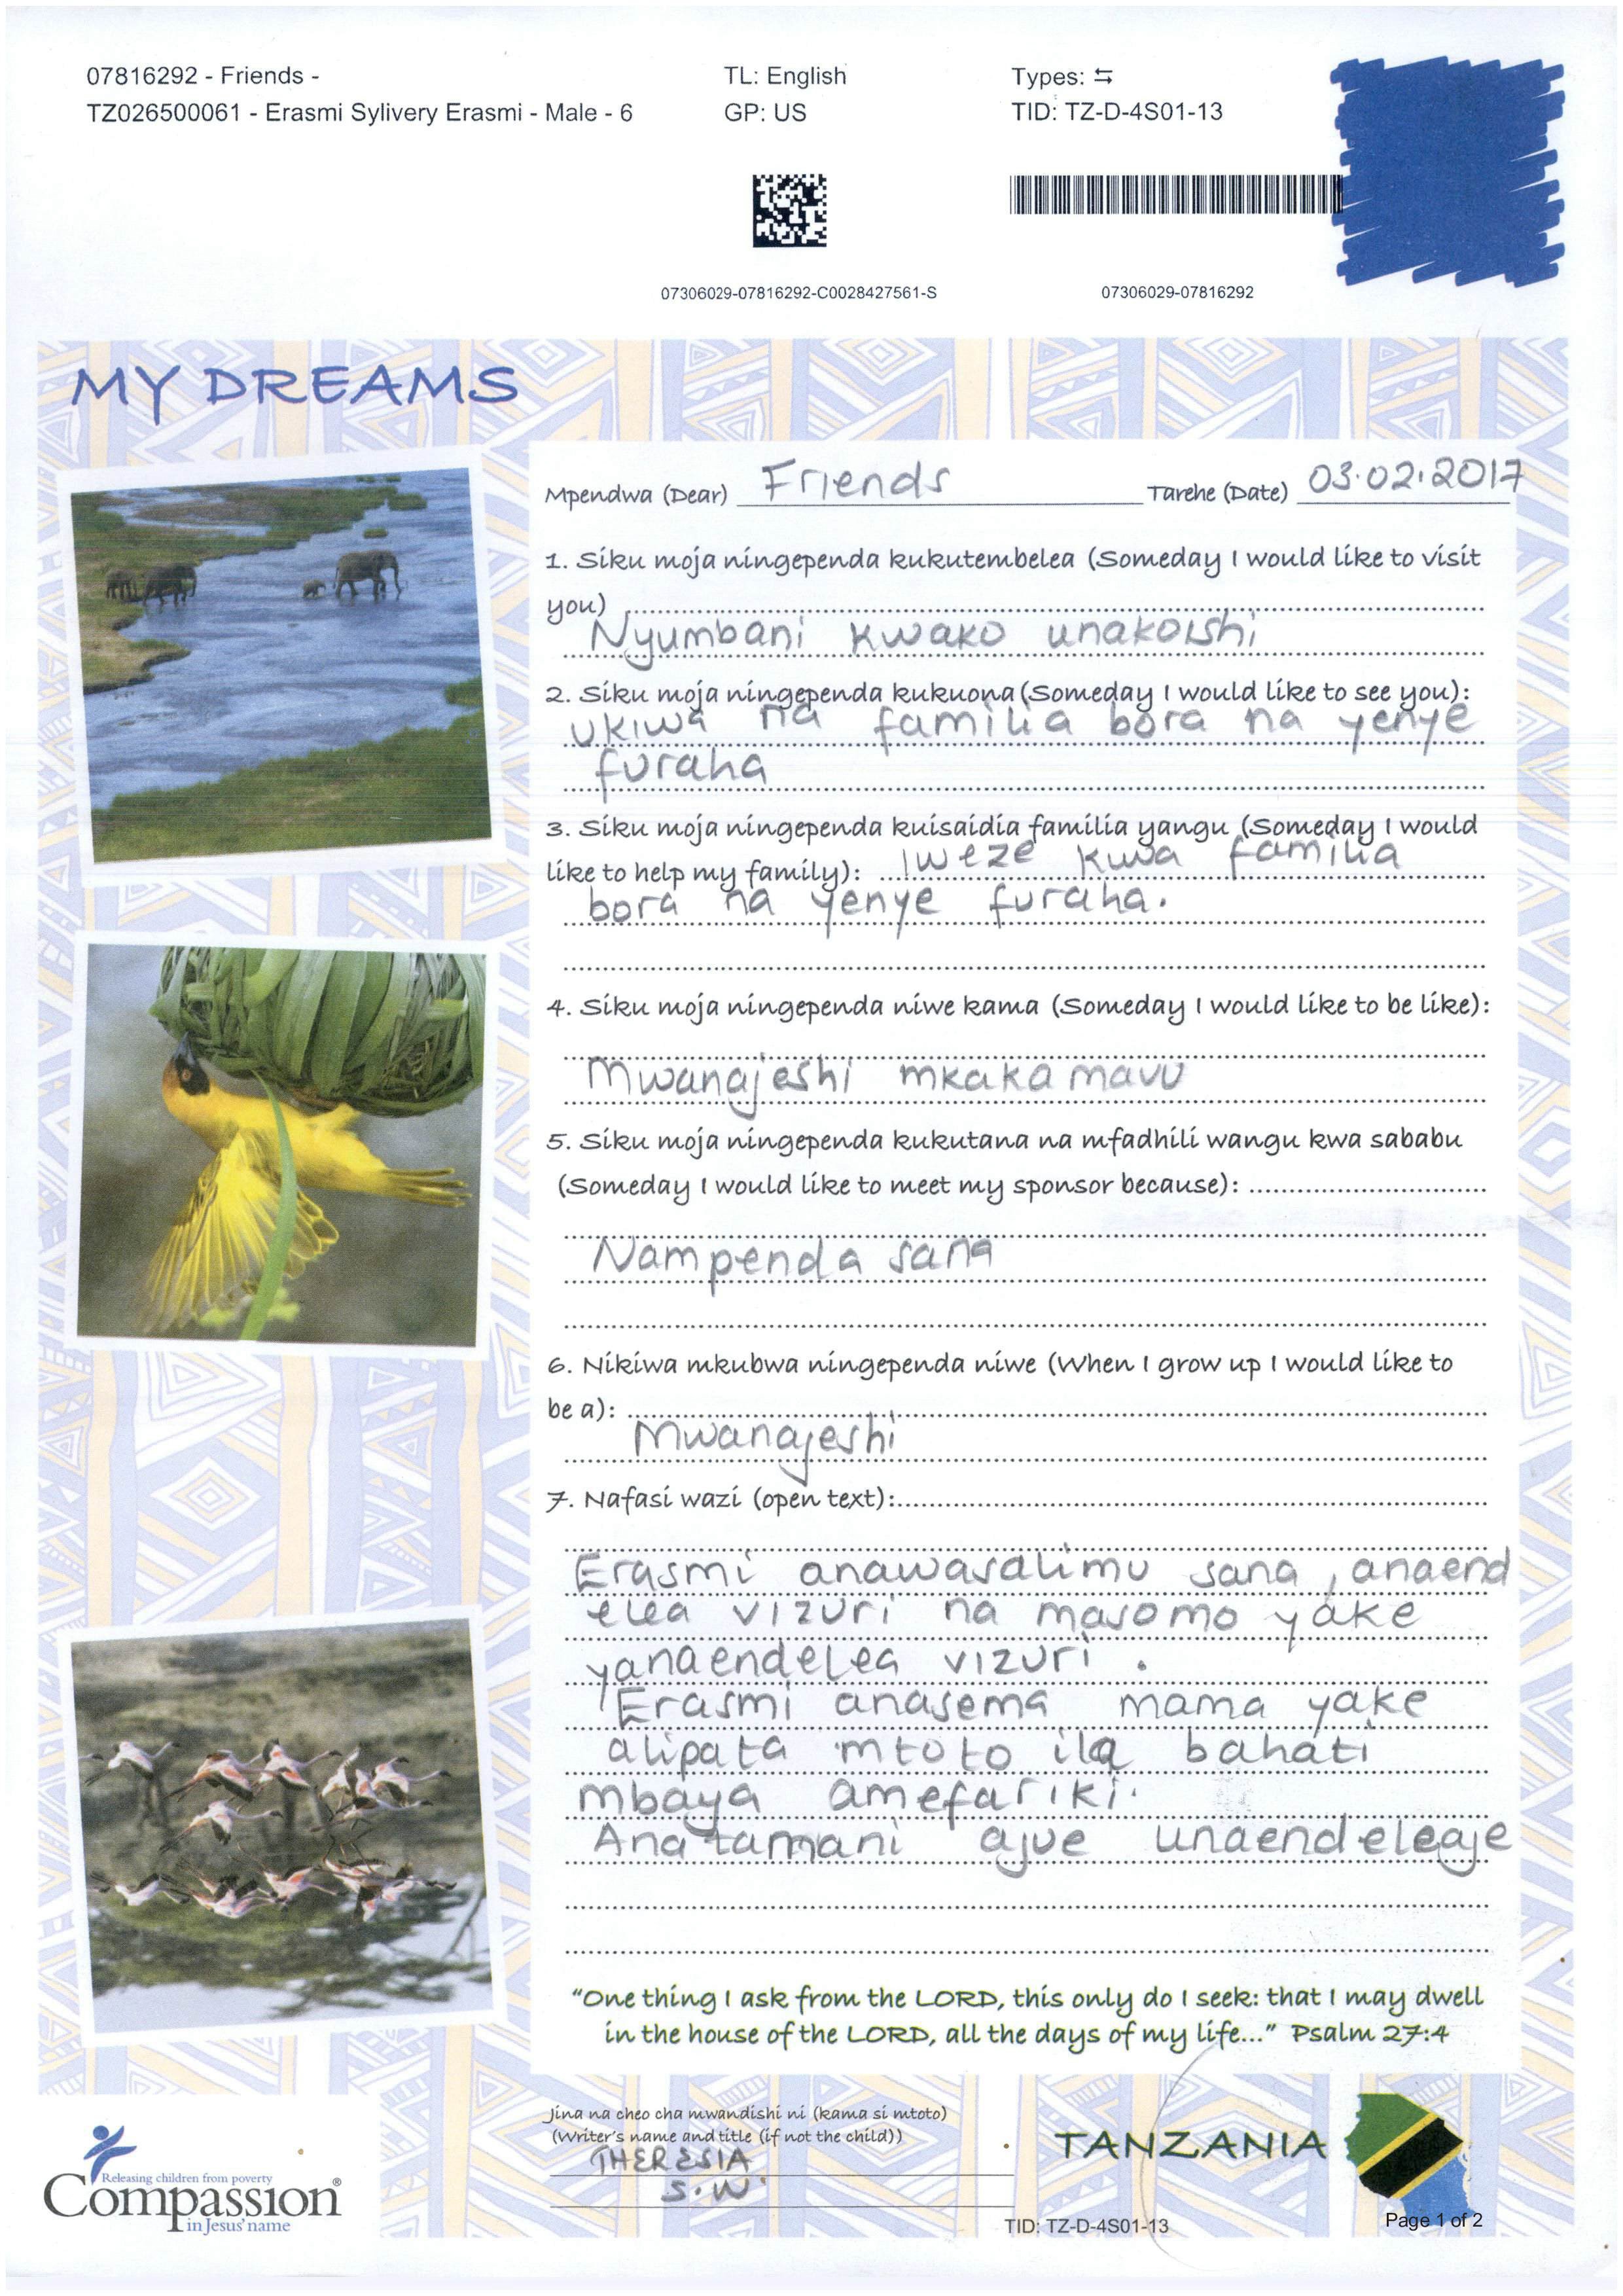 07816292 - Friends -
TZ026500061 - Erasmi Sylivery Erasmi - Male - 6
TL: English
GP: US
Types: ⇆
TID: TZ-D-4S01-13
07306029-07816292-C0028427561-S
07306029-07816292
MY DREAMS
Mpendwa (Dear) Friends Tarehe (Date) 03.02.2017
1. Siku moja ningependa kukutembelea (Someday I would like to visit
you)
Nyumbani kwako unakoishi
2. Siku moja ningependa kukuona (Someday I would like to see you):
ukiwa na familia bora na yenye
furaha
3. Siku moja ningependa kuisaidia familia yangu (Someday I would
like to help my family): Iweze kuwa familia
bora na yenye furaha.
4. Siku moja ningependa niwe kama (Someday I would like to be like):
Mwanajeshi mkakamavu
5. Siku moja ningependa kukutana na mfadhili wangu kwa sababu
(Someday I would like to meet my sponsor because):
Nampenda sana
6. Nikiwa mkubwa ningependa niwe (When I grow up I would like to
be a):
Mwanajeshi
7. Nafasi wazi (open text):
Erasmi anawasalimu sana, anaend
elea vizuri na masomo yake
yanaendelea vizuri.
Erasmi anasema mama yake
alipata mtoto ila bahati
mbaya amefariki.
Anatamani ajue unaendeleaje
"One thing I ask from the LORD, this only do I seek: that I may dwell
in the house of the LORD, all the days of my life..." Psalm 27:4
Jina na cheo cha mwandishi ni (kama si mtoto)
(Writer's name and title (if not the child))
THERESIA
S.W
Releasing children from poverty
Compassion®
in Jesus' name
TANZANIA
TID: TZ-D-4S01-13
Page 1 of 2